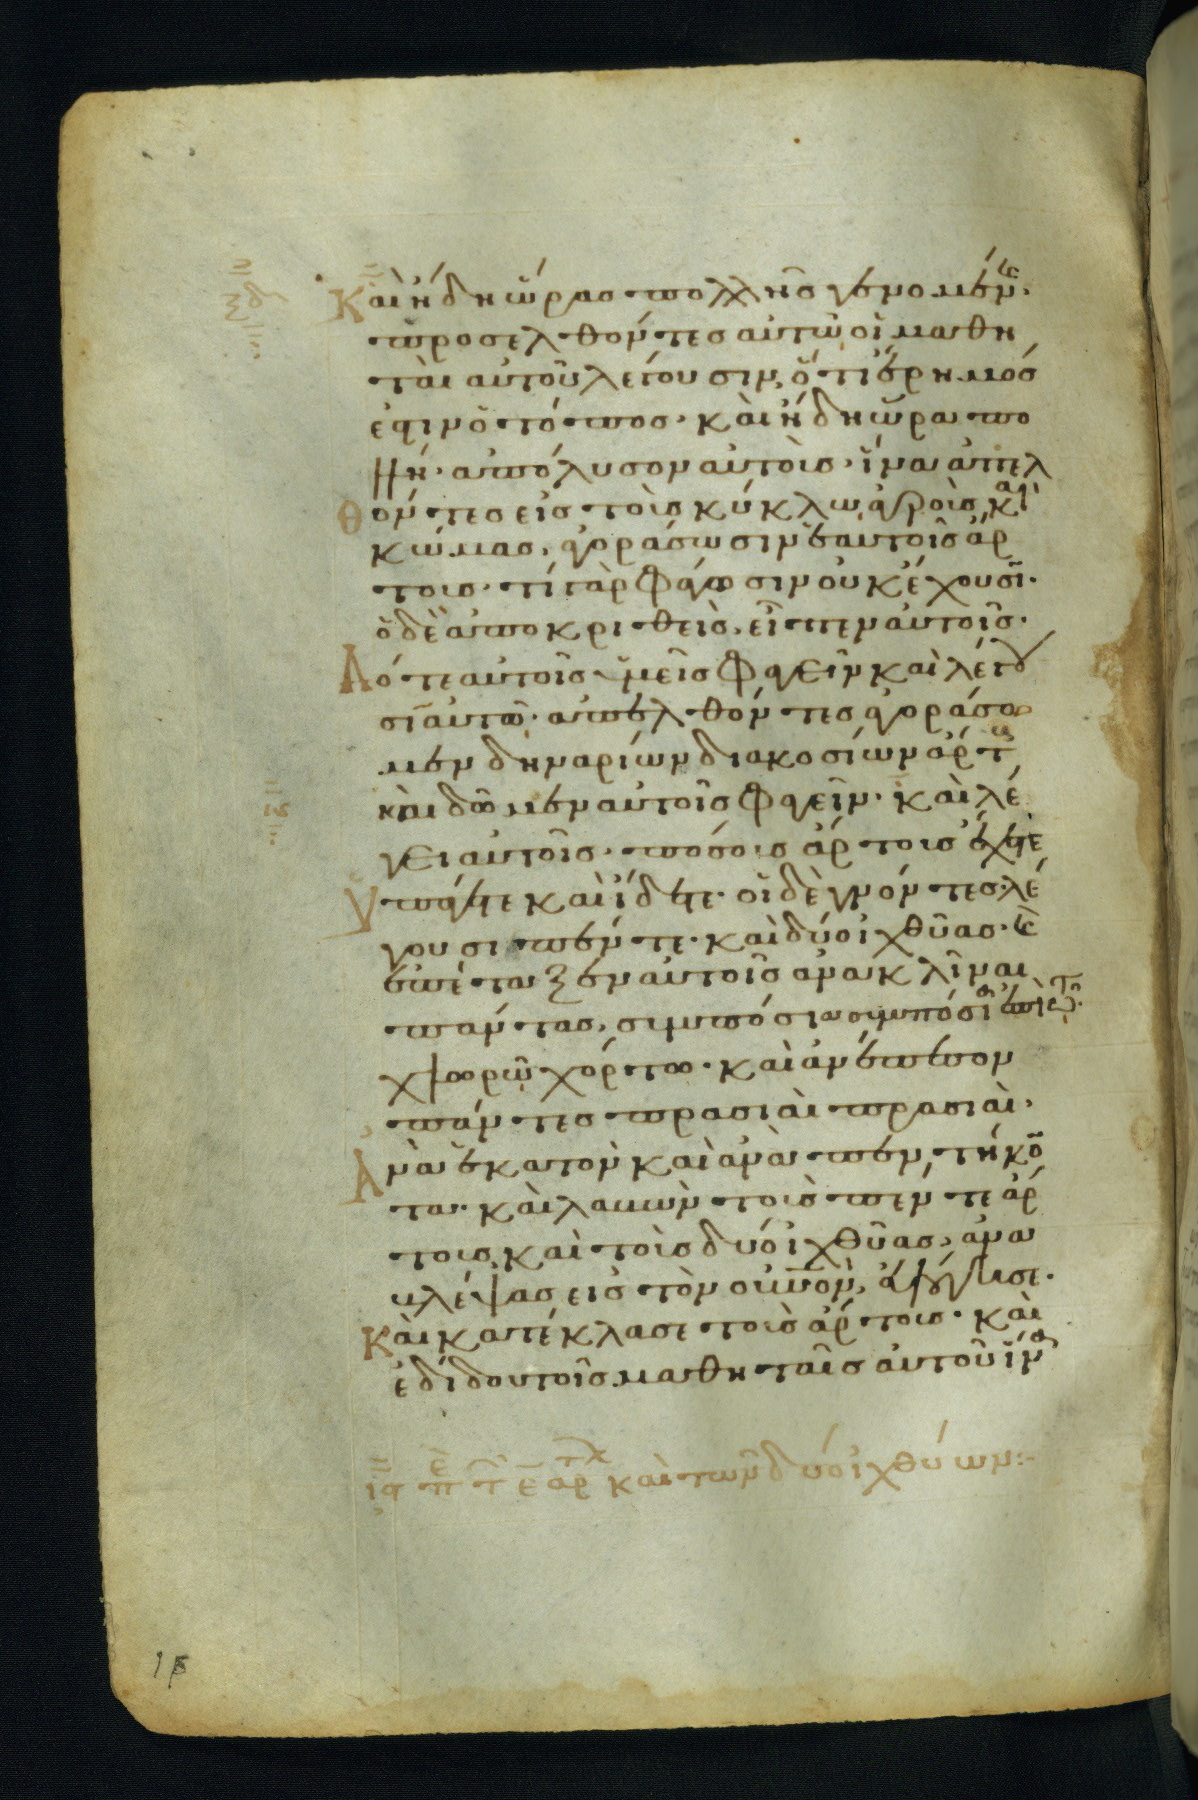 Καὶ ἤδη ὥρας πολλῆς γενομένης·
προσελθόντες αὐτῶ οἱ μαθη
ταὶ αὐτοῦ λέγουσιν, ὅτι ἔρημός
ἐστιν ὁ τόπος· καὶ ἤδη ὥρα πο
λλή· ἀπόλυσον αὐτοὺς· ἵνα ἀπελ
θόντες εἰς τοὺς κύκλω ἀγροὺς καὶ
κώμας, ἀγοράσωσιν ἑαυτοῖς ἄρ
τους· τί γὰρ φάγωσιν οὐκ ἔχουσῖ·
ὁ δὲ ἀποκριθεὶς, εἶπεν αὐτοῖς·
Δότε αὐτοῖς ὑμεῖς φαγεῖν καὶ λέγου
σῖ αὐτῶ· ἀπελθόντες ἀγοράσω
μεν δηναρίων διακοσίων ἄρτους
καὶ δῶμεν αὐτοῖς φαγεῖν· καὶ λέ
γει αὐτοῖς· πόσους ἄρτους ἔχετε
Ὑπάγετε καὶ ἴδετε· οἱ δὲ γνόντες· λέ
γουσι πέντε· καὶ δύο ἰχθύας· καὶ
ἐπέταξεν αὐτοῖς ἀνακλῖναι
πάντας, συμπόσια συμπόσια ἐπὶ τῶ
χλωρῶ χόρτω· καὶ ἀνέπεσον
πάντες πρασιαὶ πρασιαὶ·
Ἀνὰ ἑκατὸν καὶ ἀνὰ πεντήκο
τα· καὶ λαβὼν τοὺς πέντε ἄρ
τους καὶ τοὺς δύο ἰχθύας, ἀνα
βλέψας εἰς τὸν οὐνὸν, εὐλόγησε·
Καὶ κατέκλασε τοὺς ἄρτους· καὶ
ἐδίδου τοῖς μαθηταῖς αὐτοῦ ἵνα
ις π τ ε αρ καὶ τῶν δύο ἰχθύων:-